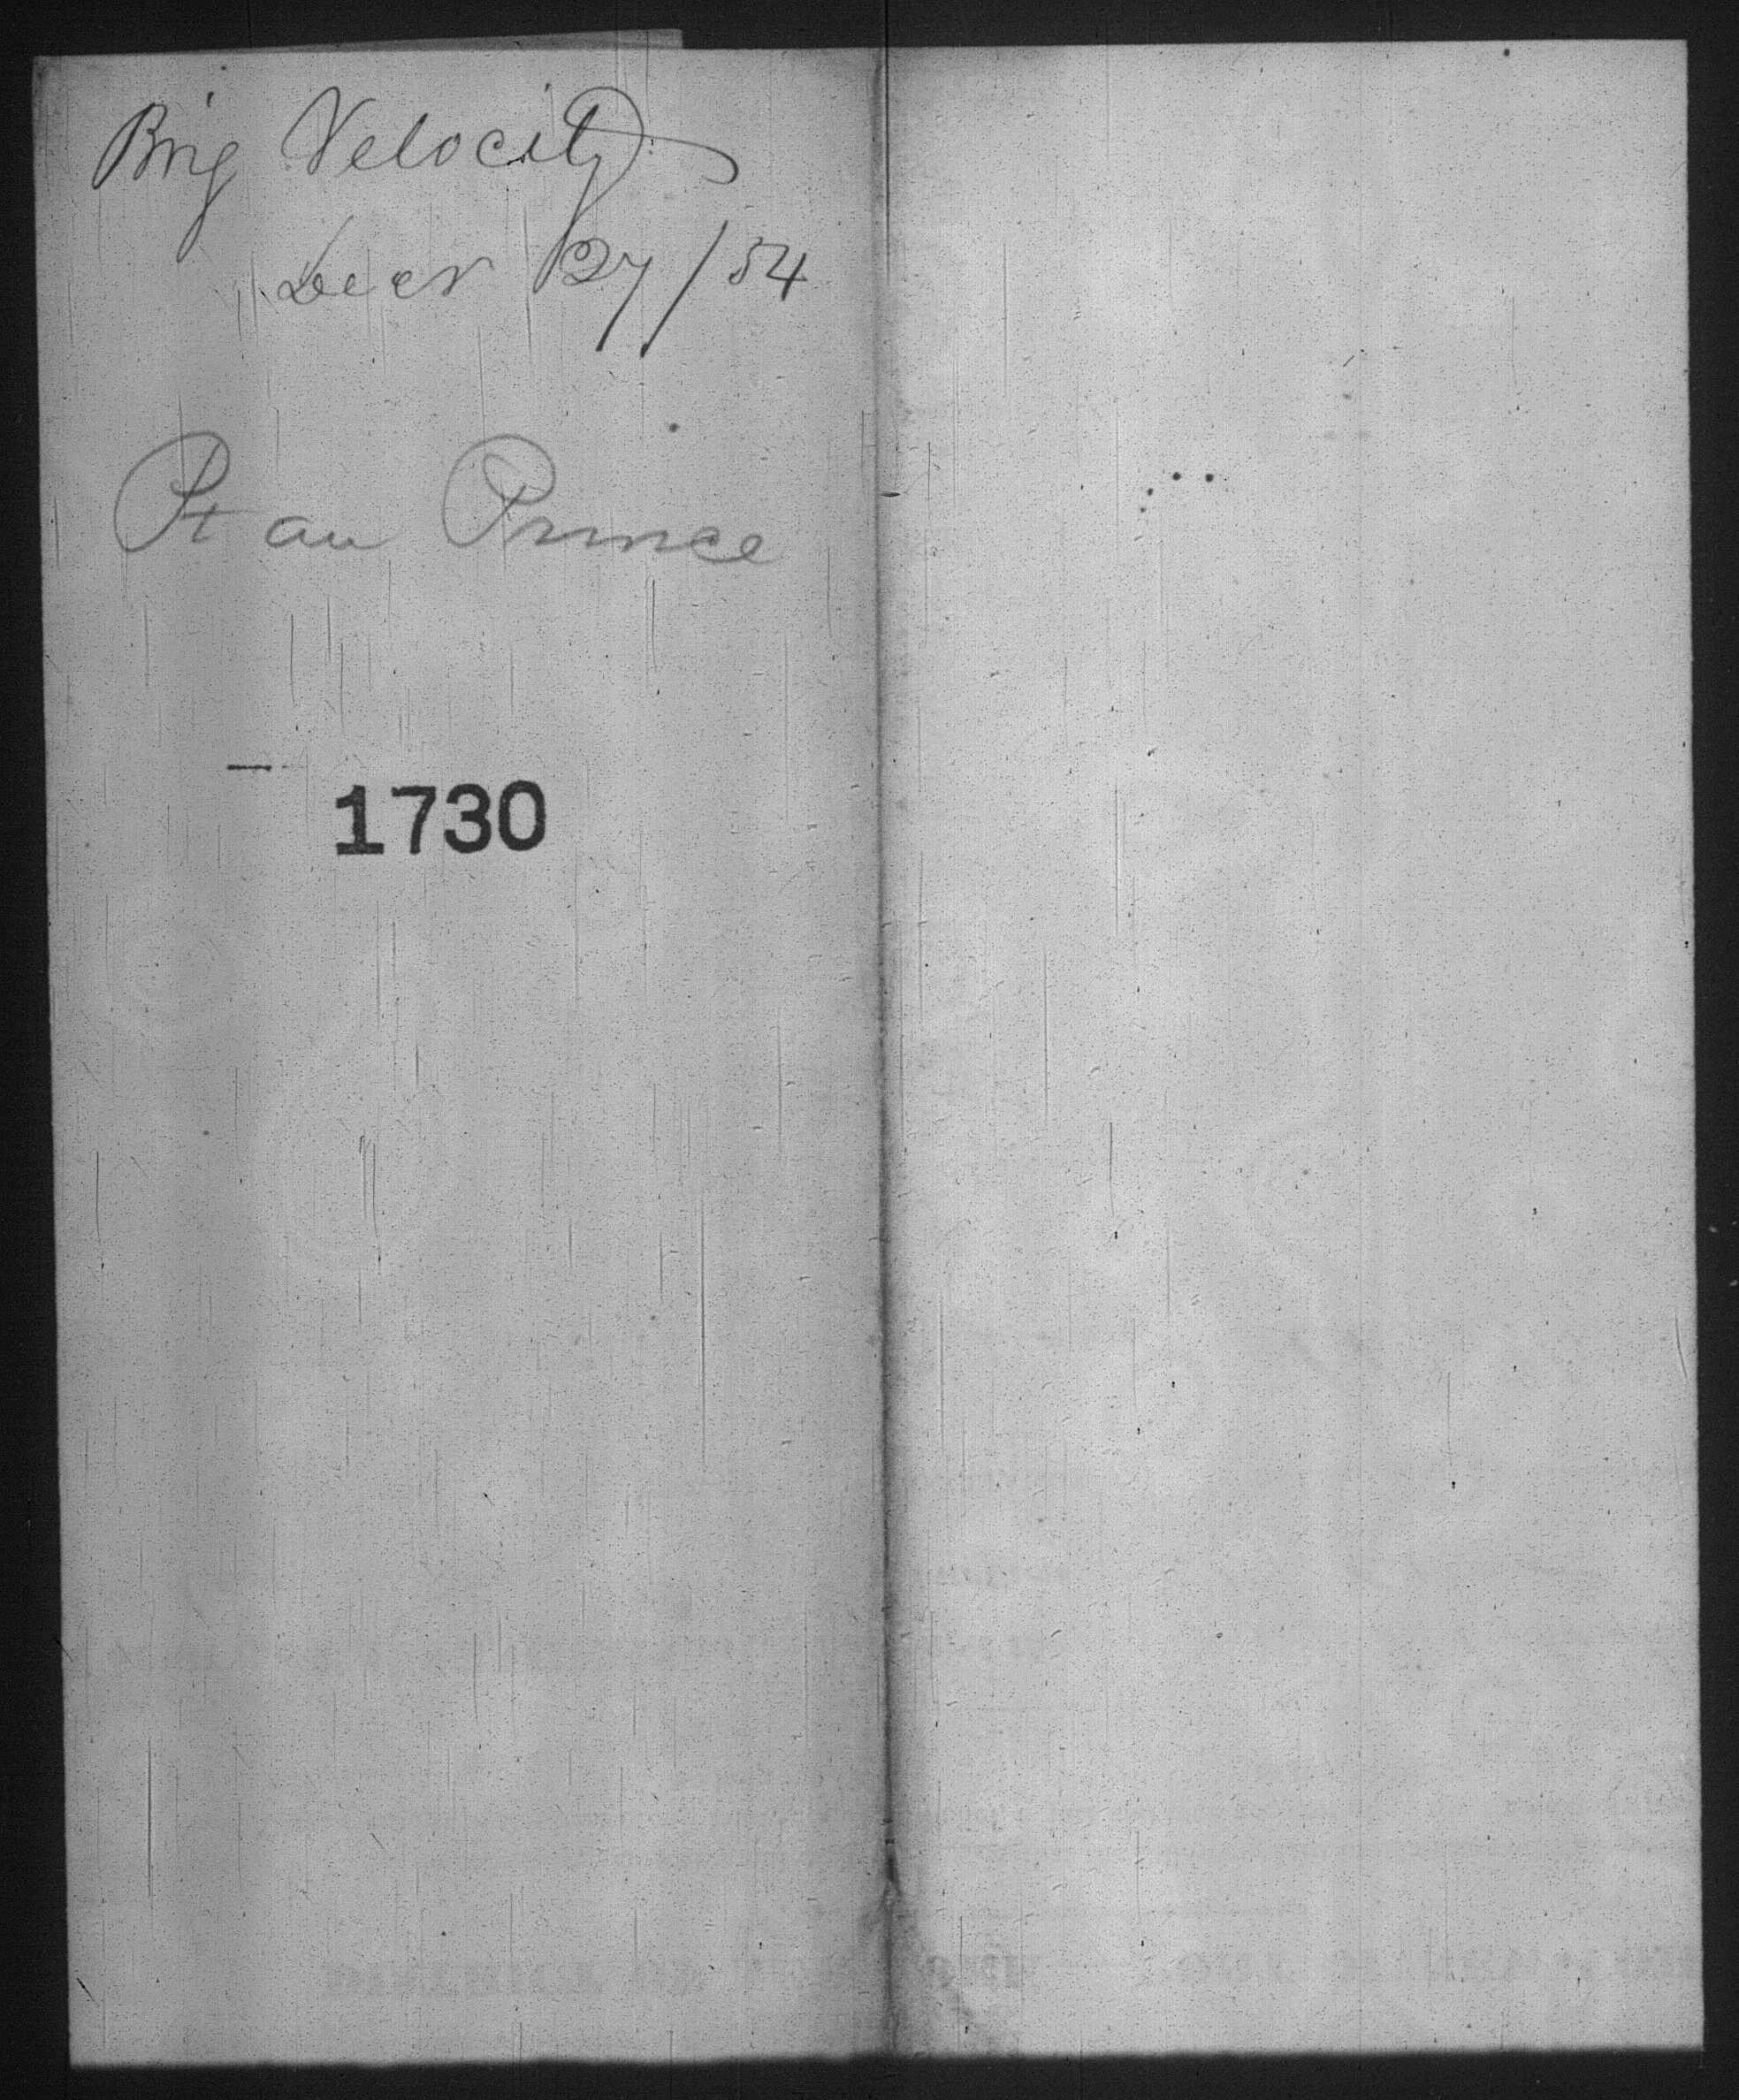 Brig Velocity
Decr 27/54
Pt au Prince
1730